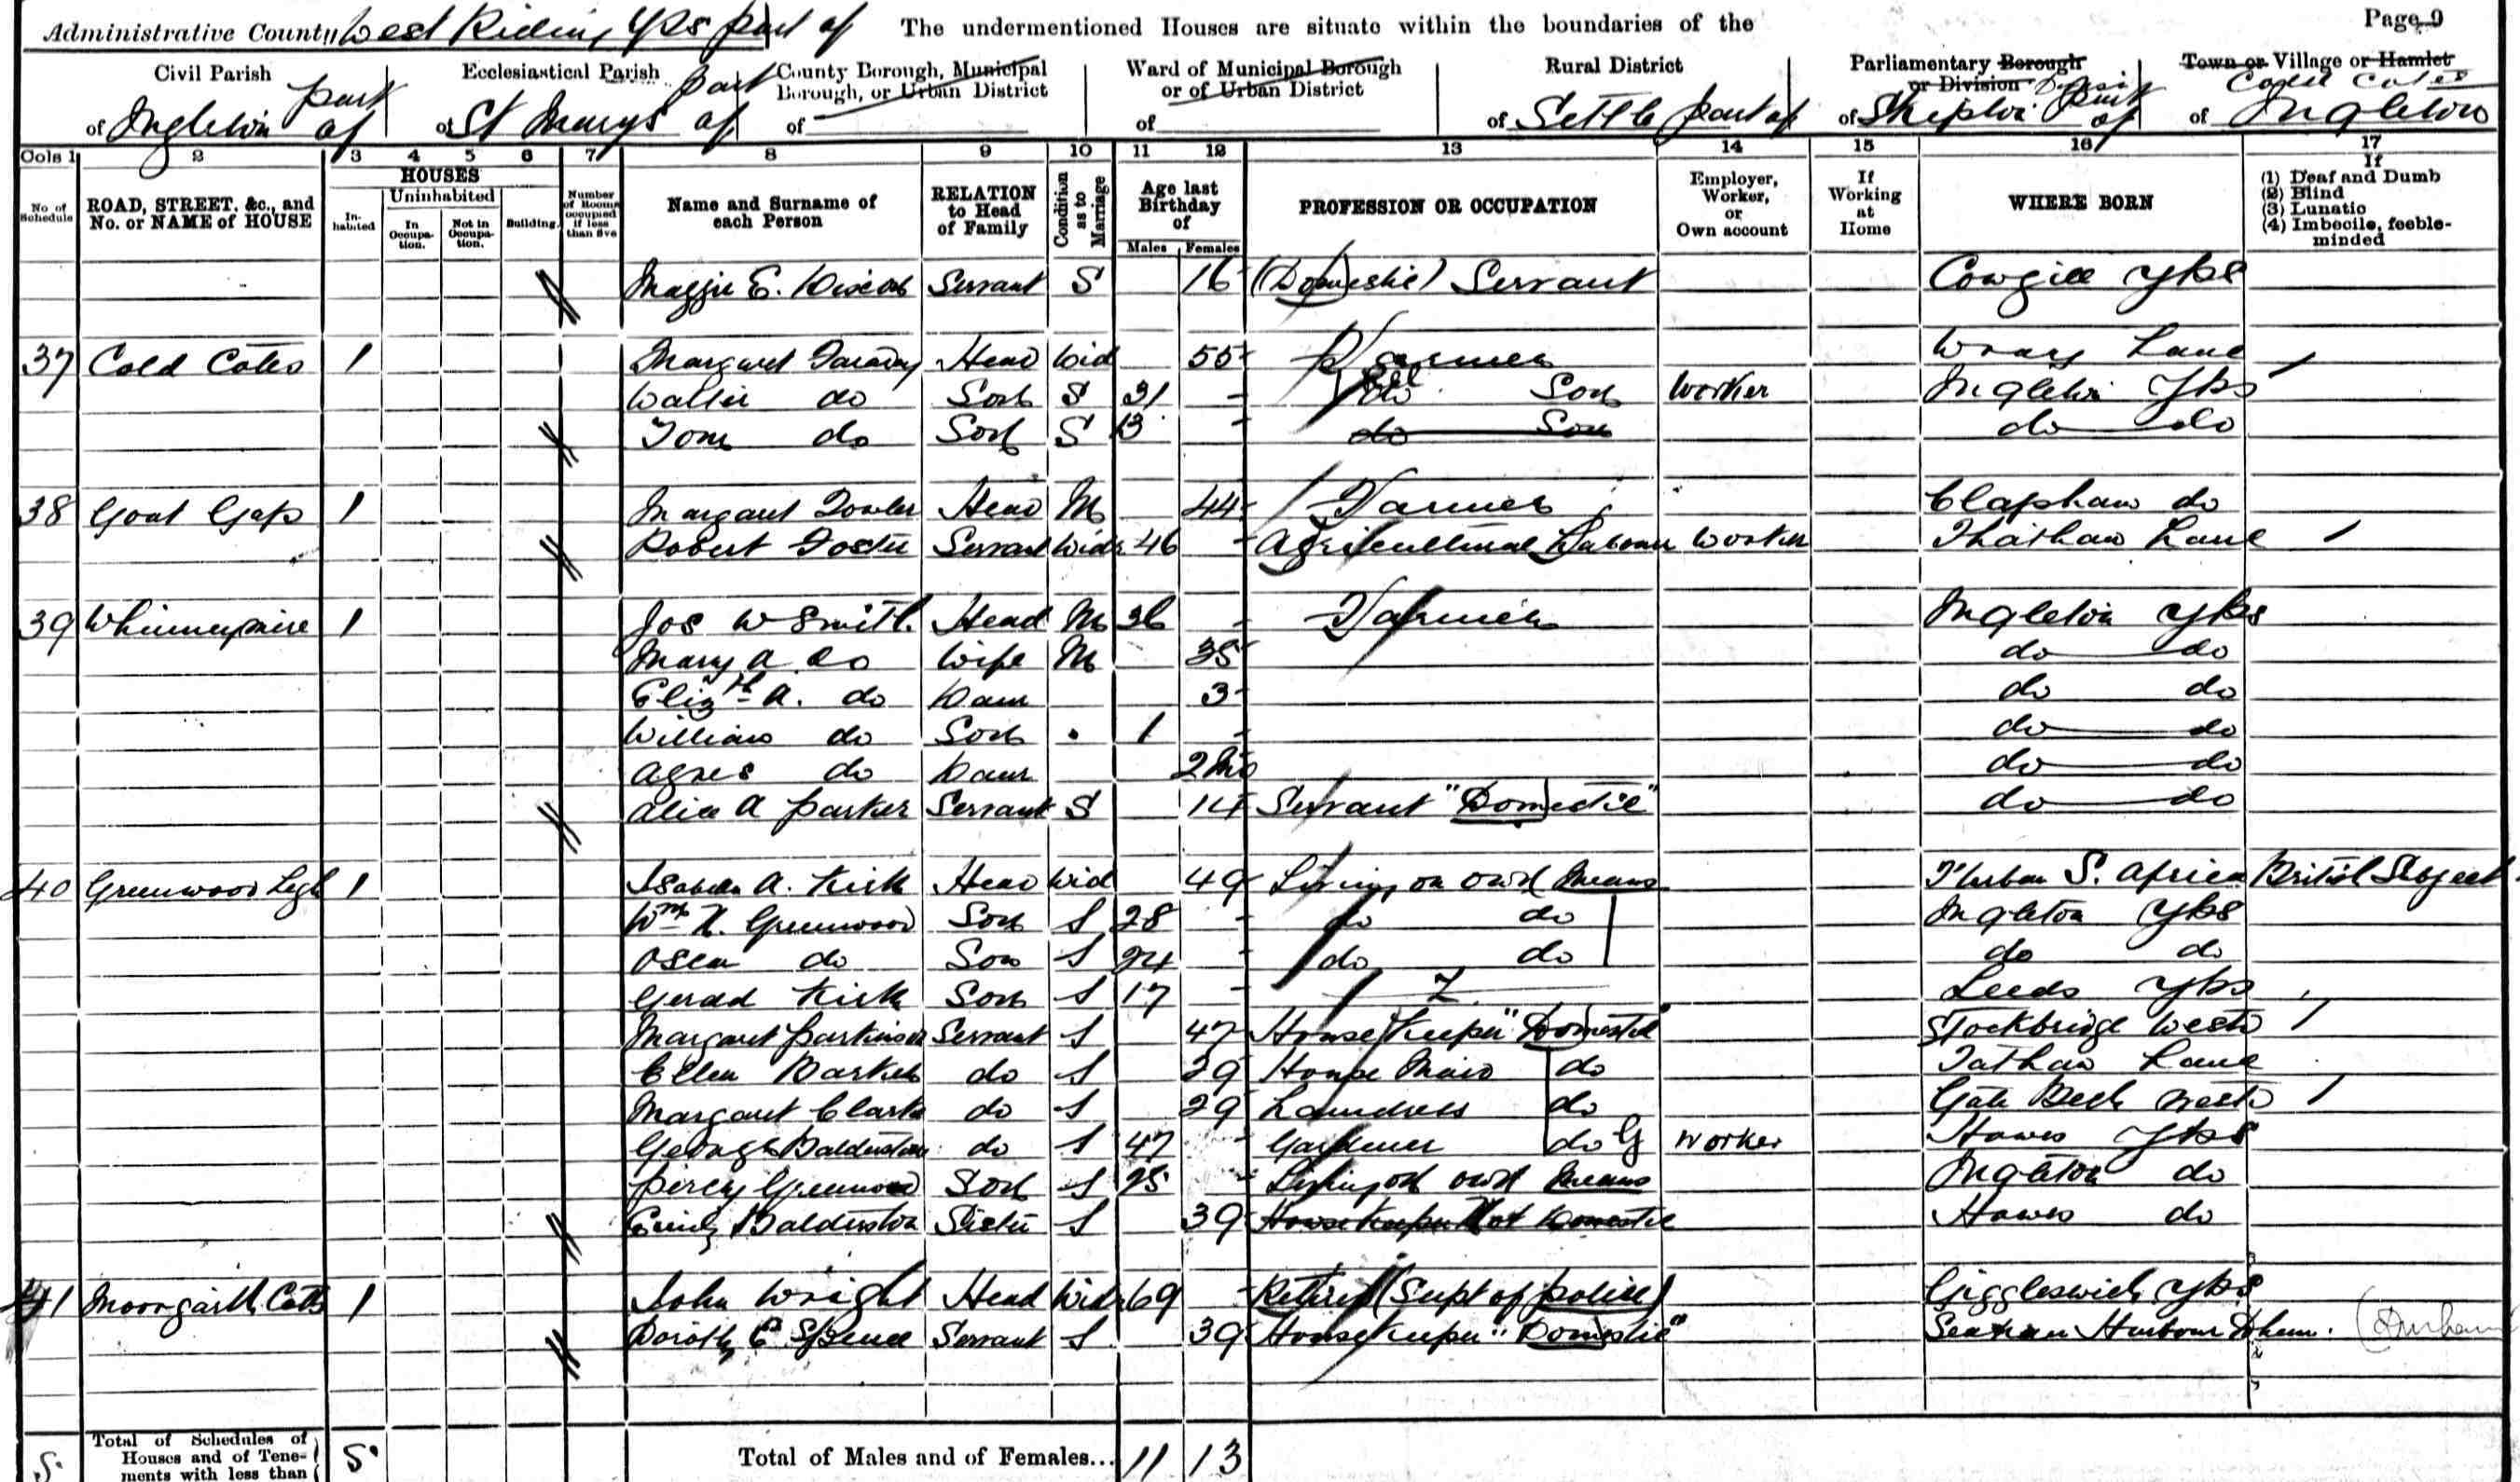 Administrative County West Riding Yks part of The undermentioned Houses are situate within the boundaries of the Page 9
Civil Parish Ecclesiastical Parish County Borough, Municipal Borough, or Urban District Ward of Municipal Borough or of Urban District Rural District Parliamentary Borough or Division Town or Village or Hamlet
of Ingleton part of of St Marys part of of of of Settle part of of Skipton part of of Cold Cotes Ingleton
Cols 1 2 3 4 5 6 7 8 9 10 11 12 13 14 15 16 17
No. of Schedule ROAD, STREET, &c., and No. or NAME of HOUSE HOUSES Inhabited Uninhabited In Occupation. Not in Occupation. Building. Number of Rooms occupied if less than five Name and Surname of each Person RELATION to Head of Family Condition as to Marriage Age last Birthday of Males Females PROFESSION OR OCCUPATION Employer, Worker, or Own account If Working at Home WHERE BORN If (1) Deaf and Dumb (2) Blind (3) Lunatic (4) Imbecile, feeble-minded
Maggie E. Servant S 16 (Domestic) Servant Cowgill Yks
37 Cold Cotes 1 Margaret Faraday Head Wid 55 Farmer Wray Lanc
Walter do Son S 31 do Son Worker Ingleton Yks
Tom do Son S 13 do Son do do
38 Goat Gap 1 Margaret Towler Head M 44 Farmer Clapham do
Robert Foster Servant Widr 46 Agricultural Labourer Worker Thatham Lanc
39 Whinneymire 1 Jos W Smith Head M 36 Farmer Ingleton Yks
Mary A do Wife M 35 do do
Elizth A. do Daur 3 do do
William do Son 1 do do
Agnes do Daur 2 Mo do do
Alice A Parker Servant S 14 Servant "Domestic" do do
40 Greenwood Legh 1 Isabella A. Kirk Head Wid 49 Living on own Means Durban S. Africa British Subject
Wm N. Greenwood Son S 28 do do Ingleton Yks
Oscar do Son S 24 do do do do
Gerald Kirk Son S 17 Leeds Yks
Margaret Parkinson Servant S 47 House Keeper "Domestic" Stockbridge Westd
Ellen Barker do S 29 House Maid do Tatham Lanc
Margaret Clark do S 29 Laundress do Gate Beck Westd
George Balderston do S 47 Gardener do G Worker Hawes Yks
Percy Greenwood Son S 25 Living on own Means Ingleton do
Emily Balderston Sister S 39 House Keeper Not Domestic Hawes do
41 Moorgarth Cotts 1 John Wright Head Widr 69 Retired (Supt of Police) Giggleswick Yks
Dorothy E Spence Servant S 39 House Keeper "Domestic" Seaham Harbour Dham. (Durham
5 Total of Schedules of Houses and of Tenements with less than 5 Total of Males and of Females... 11 13